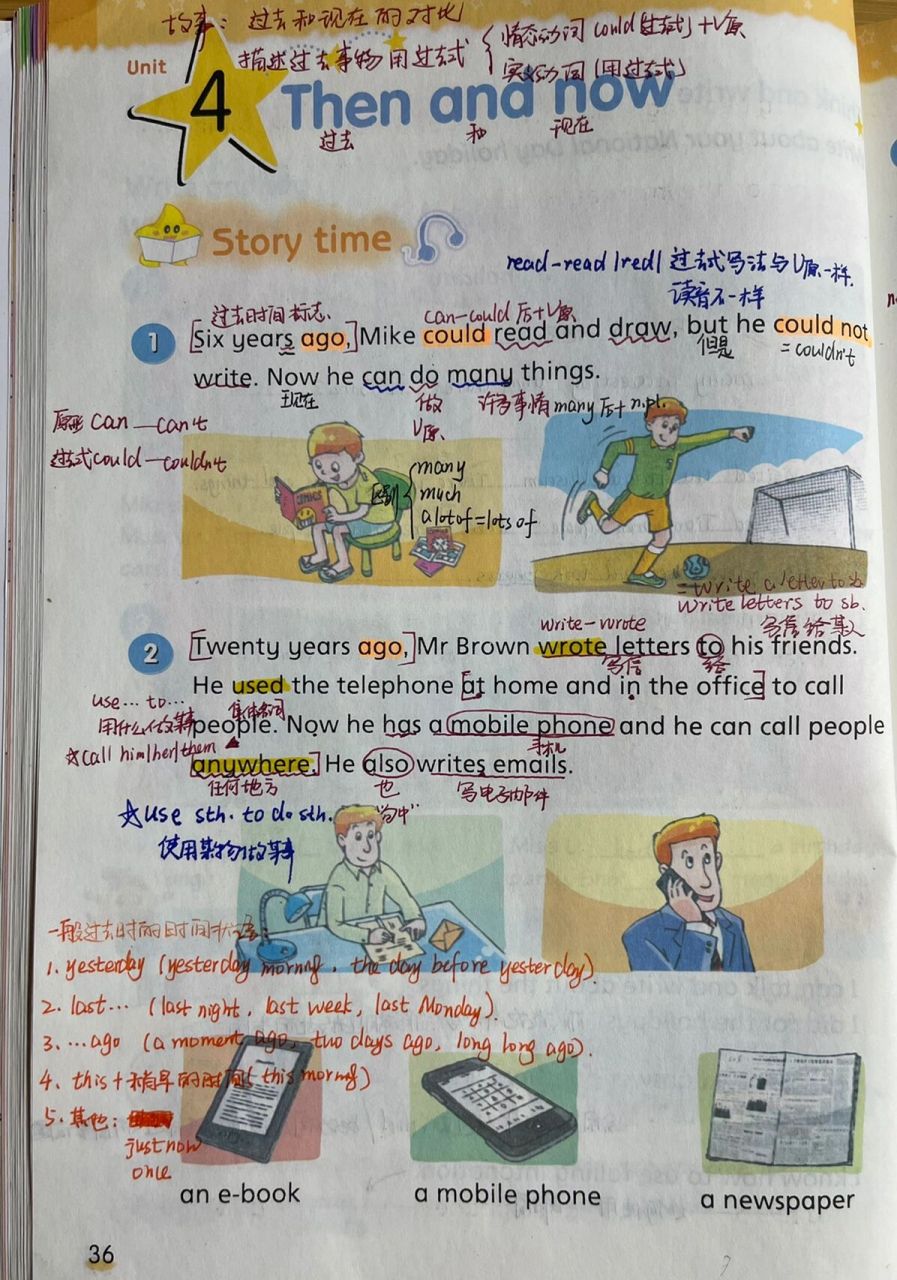 故事：过去和现在的对比
描述过去事物用过去式
情态动词 could(过去式)+V原
实义动词(用过去式)
Unit
4
Then and now
过去 和 现在
Story time
read-read |red| 过去式写法与V原一样.
读音不一样
过去时间标志.
can-could 后+V原
1
Six years ago, Mike could read and draw, but he could not
但是
= couldn't
write. Now he can do many things.
现在
做
V原
许多事情 many 后+n.pl.
原形 can — can't
过去式 could — couldn't
区别
many
much
a lot of = lots of
COMICS
= write a letter to sb.
write letters to sb.
写信给某人
write-wrote
2
Twenty years ago, Mr Brown wrote letters to his friends.
写信
给
He used the telephone at home and in the office to call
use... to...
用什么做某事
集体名词
people. Now he has a mobile phone and he can call people
手机
☆call him/her/them
anywhere. He also writes emails.
任何地方
也
"句中"
写电子邮件
☆use sth. to do sth.
使用某物做某事
一般过去时的时间状语
1. yesterday (yesterday morning, the day before yesterday)
2. last... (last night, last week, last Monday).
3. ...ago (a moment ago, two days ago, long long ago).
4. this+稍早的时间(this morning)
5. 其他:
just now
once
an e-book
a mobile phone
a newspaper
36